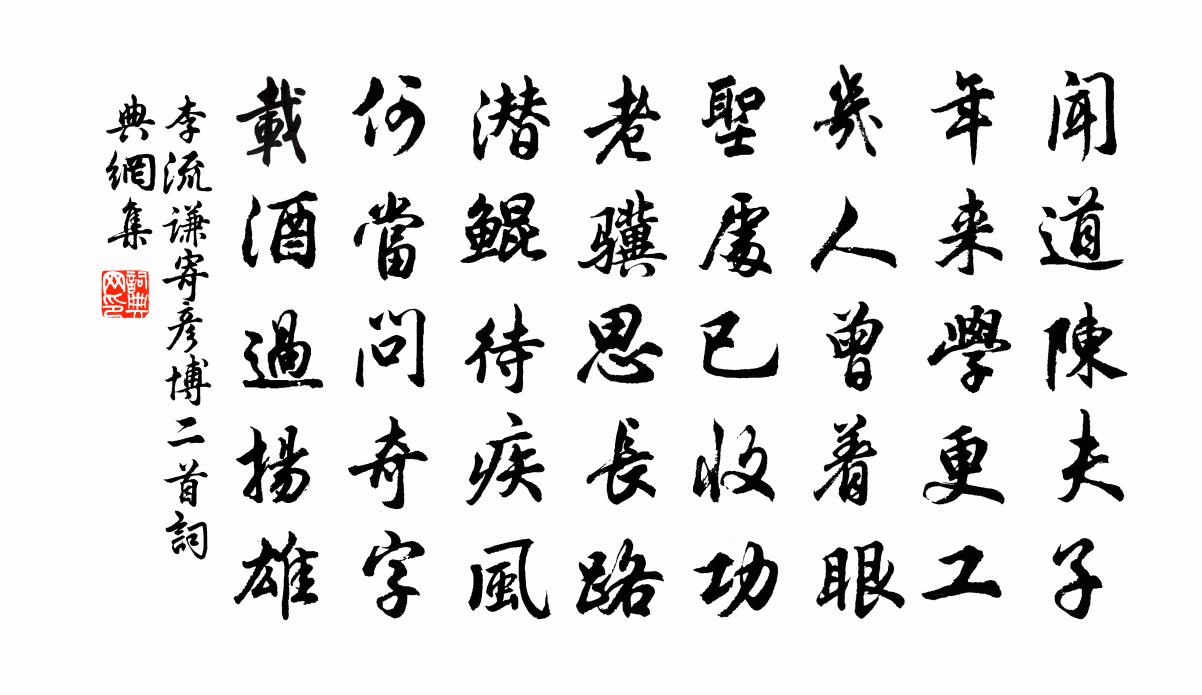 聞道陳夫子
年来學更工
幾人曾着眼
聖處已收功
老驥思長路
潜鯤待疾風
何當問奇字
載酒過揚雄
李流謙寄彦博二首詞
典網集
詞典
网印